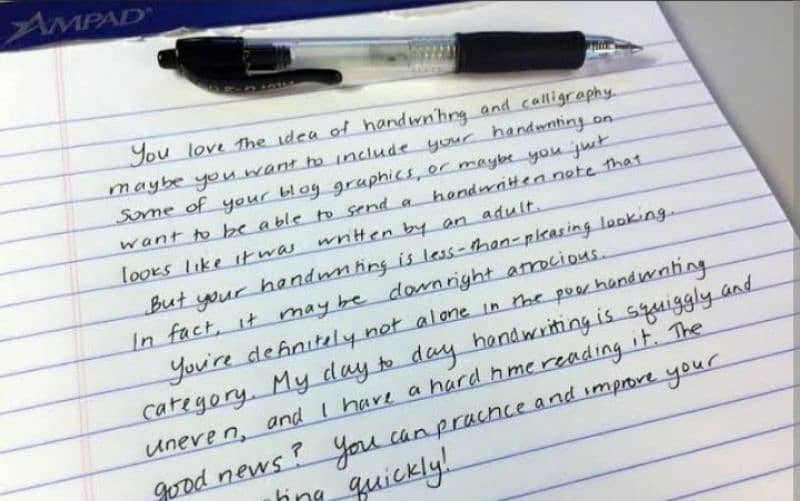 AMPAD
You love the idea of handwriting and calligraphy.
maybe you want to include your handwriting on
some of your blog graphics, or maybe you just
want to be able to send a handwritten note that
looks like it was written by an adult.
But your handwriting is less-than-pleasing looking.
In fact, it may be downright atrocious.
You're definitely not alone in the poor handwriting
category. My day to day handwriting is squiggly and
uneven, and I have a hard time reading it. The
good news? You can practice and improve your
quickly!